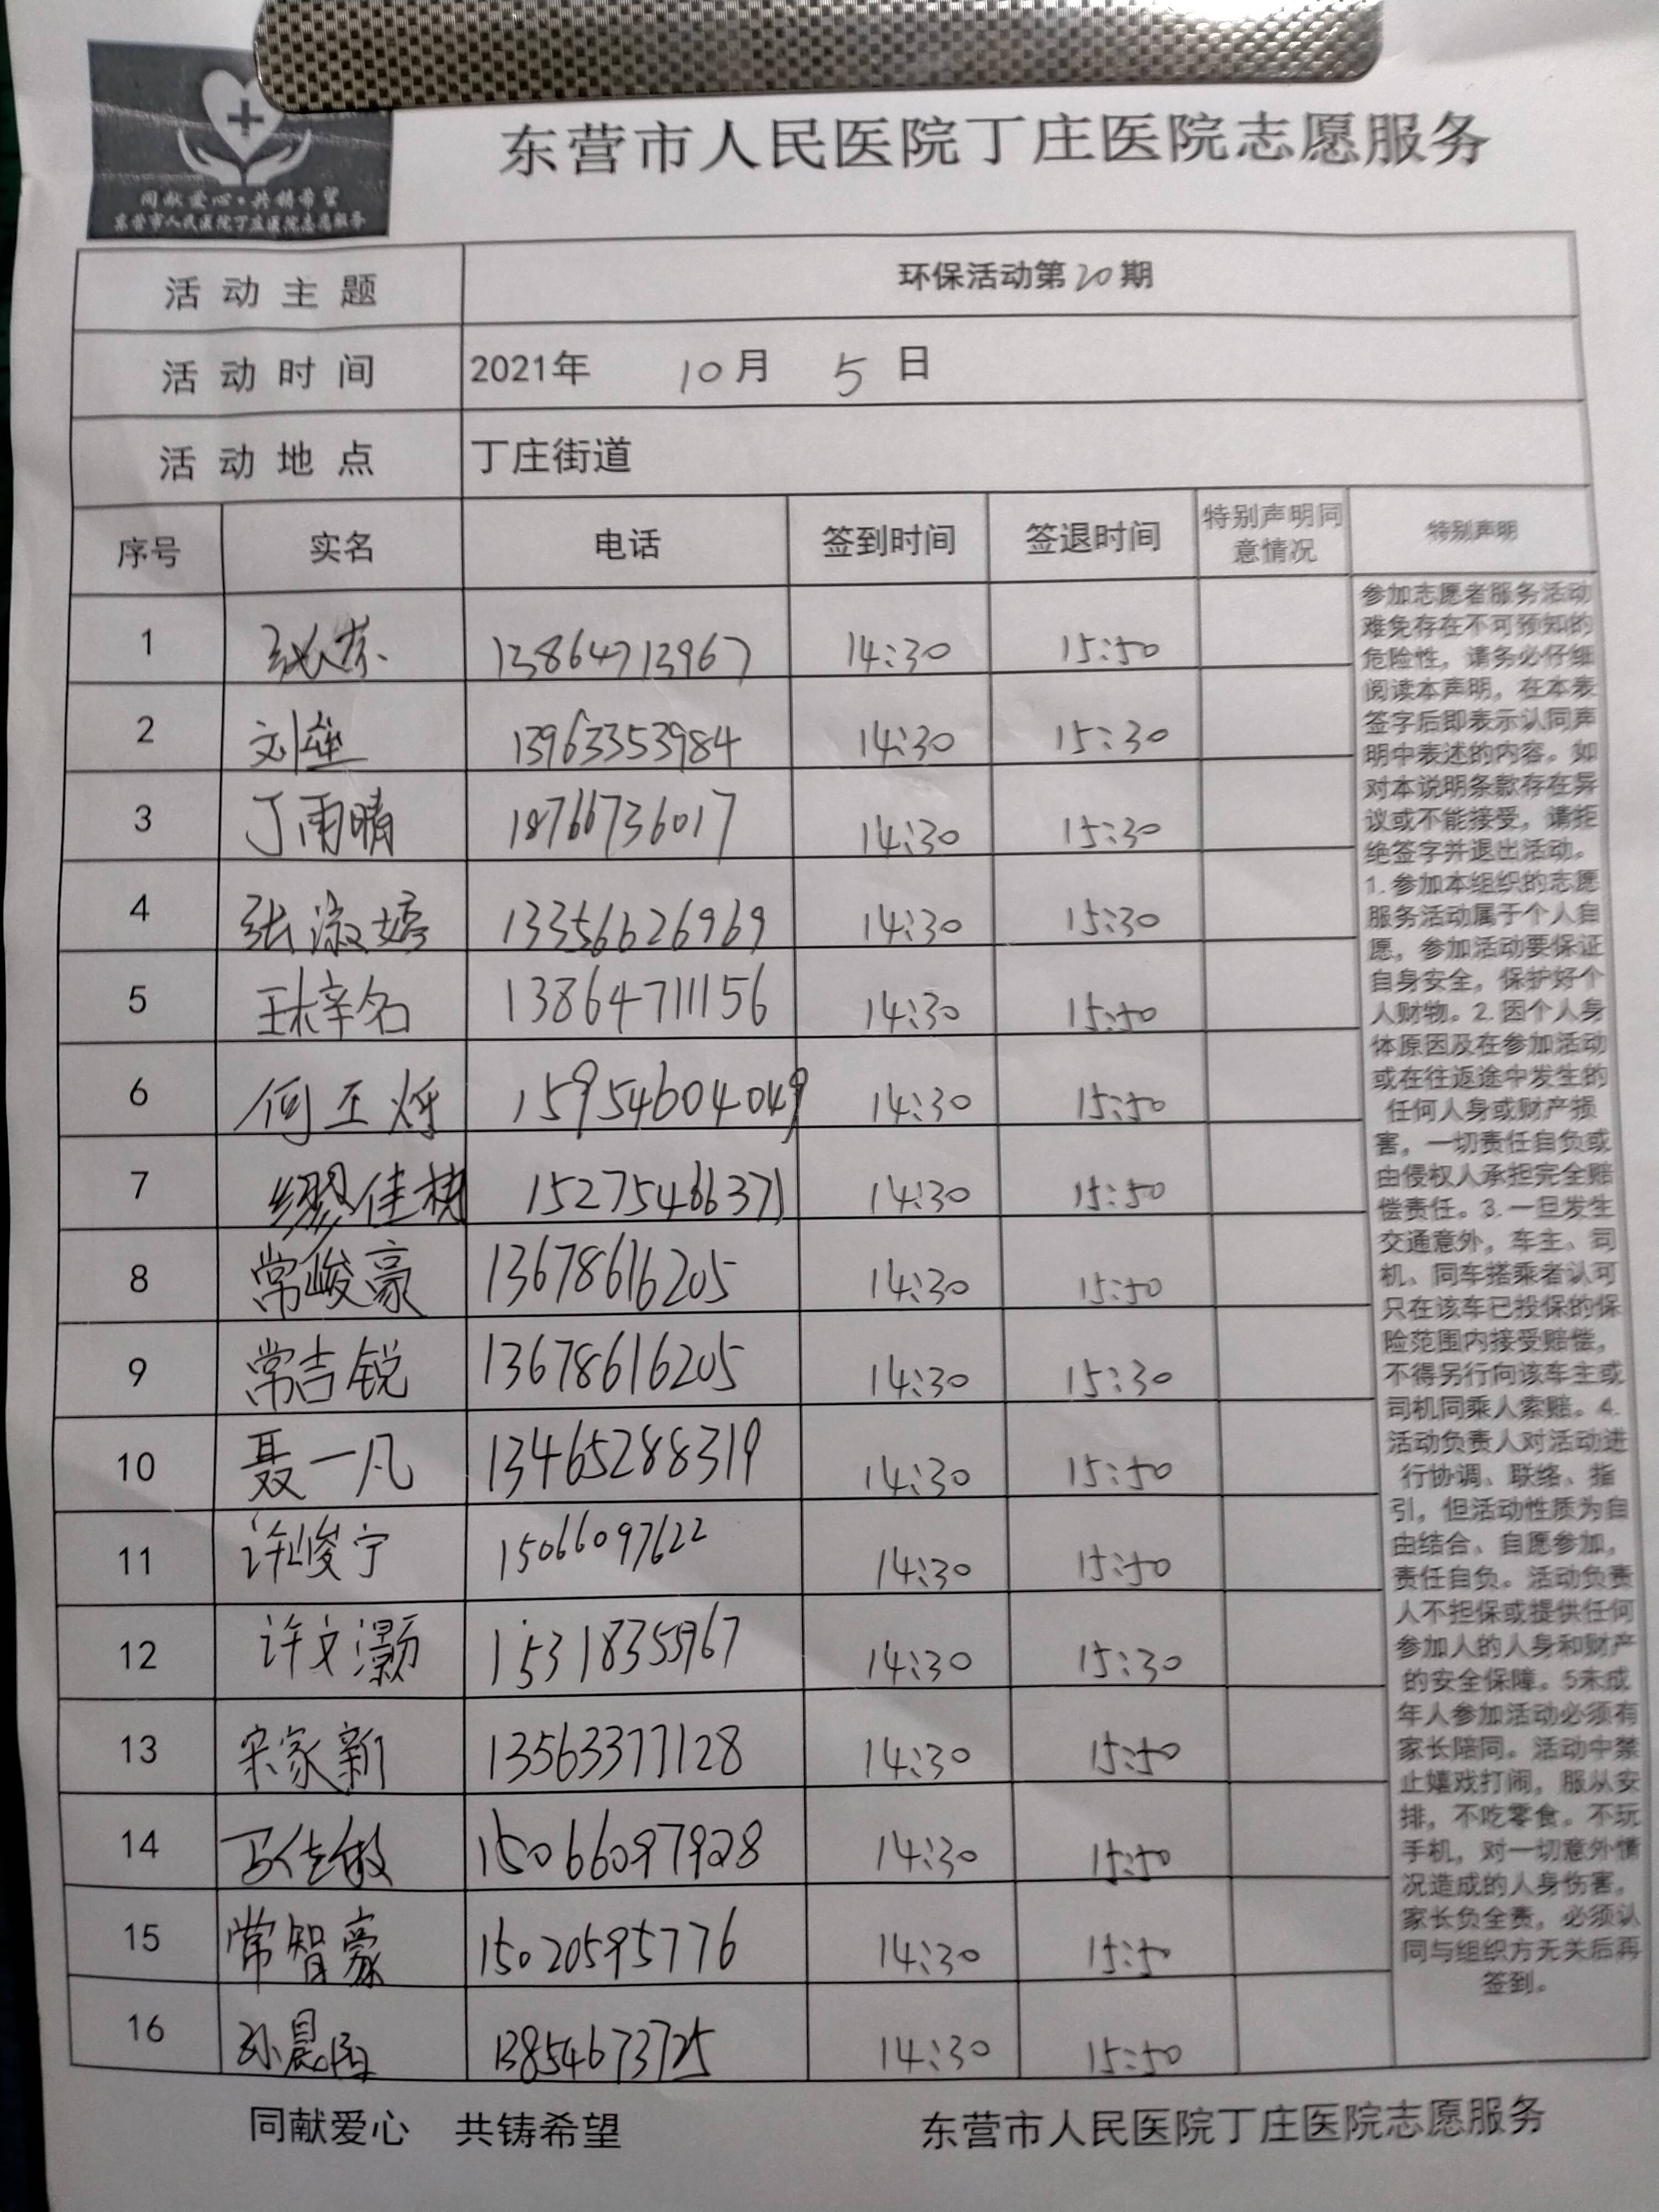 同献爱心·共铸希望
东营市人民医院丁庄医院志愿服务
东营市人民医院丁庄医院志愿服务
活动主题 环保活动第20期
活动时间 2021年 10月 5日
活动地点 丁庄街道
序号 实名 电话 签到时间 签退时间 特别声明同意情况 特别声明
1 13864713967 14:30 15:50
2 13963353984 14:30 15:30
3 丁雨晴 18766736017 14:30 15:30
4 张淑婷 13356626969 14:30 15:30
5 13864711156 14:30 15:50
6 15954604049 14:30 15:50
7 缪佳棋 15275466371 14:30 15:50
8 常峻豪 13678616205 14:30 15:50
9 常吉锐 13678616205 14:30 15:30
10 聂一凡 13465288319 14:30 15:50
11 许峻宁 15066097622 14:30 15:50
12 许文灏 15318355967 14:30 15:30
13 宋家新 13563377128 14:30 15:50
14 15066097928 14:30 15:50
15 常智豪 15020595776 14:30 15:50
16 13854673725 14:30 15:50
参加志愿者服务活动
难免存在不可预知的
危险性，请务必仔细
阅读本声明，在本表
签字后即表示认同声
明中表述的内容。如
对本说明条款存在异
议或不能接受，请拒
绝签字并退出活动。
1.参加本组织的志愿
服务活动属于个人自
愿，参加活动要保证
自身安全，保护好个
人财物。2.因个人身
体原因及在参加活动
或在往返途中发生的
任何人身或财产损
害，一切责任自负或
由侵权人承担完全赔
偿责任。3.一旦发生
交通意外，车主、司
机、同车搭乘者认可
只在该车已投保的保
险范围内接受赔偿，
不得另行向该车主或
司机同乘人索赔。4.
活动负责人对活动进
行协调、联络、指
引，但活动性质为自
由结合、自愿参加，
责任自负。活动负责
人不担保或提供任何
参加人的人身和财产
的安全保障。5未成
年人参加活动必须有
家长陪同。活动中禁
止嬉戏打闹，服从安
排，不吃零食。不玩
手机，对一切意外情
况造成的人身伤害，
家长负全责，必须认
同与组织方无关后再
签到。
同献爱心 共铸希望 东营市人民医院丁庄医院志愿服务